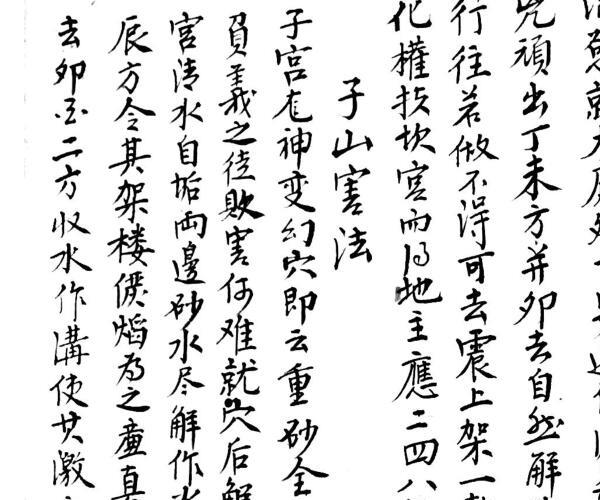 兇頑出丁未方并卯去自然解
行往若做不得可去震上架一
化權扵坎宮而得地主應二四八
子山害法
子宮尨神变幻穴即云重砂全
負義之徒敗害何难就穴后解
宮清水自垢両邊砂水尽解作水
辰方令其架楼僕焰為之童真
去卯出二方収水作溝使其激